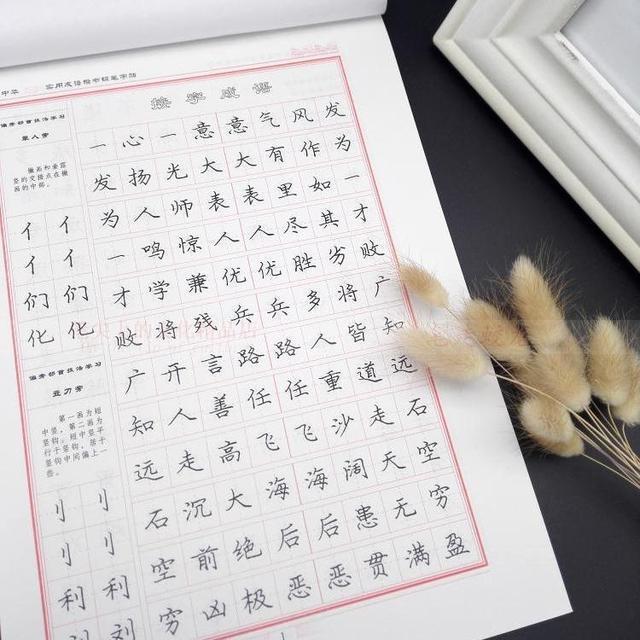 中华 实用成语楷书钢笔字帖
接字成语
偏旁部首技法学习
单人旁
撇画和垂露
竖的交接点在撇
画的中部。
亻 亻
亻 亻
们 们
化 化
偏旁部首技法学习
立刀旁
第一画为短
中竖，第二画为
竖钩，短中竖平
行于竖钩，居于
竖钩中间偏上一
些。
刂 刂
刂 刂
利 利
刘
一心一意意气风发
发扬光大大有作为
为人师表表里如一
一鸣惊人人尽其才
才学兼优优胜劣败
败将残兵兵多将广
广开言路路人皆知
知人善任任重道远
远走高飞飞沙走石
石沉大海海阔天空
空前绝后后患无穷
穷凶极恶恶贯满盈